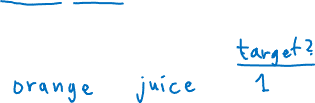 target?
orange juice 1